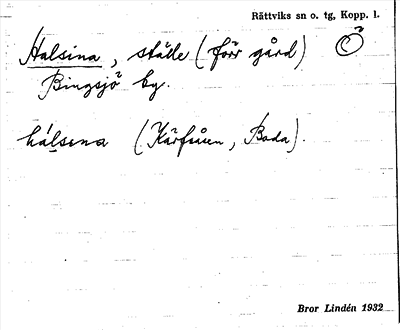 Rättviks sn o. tg, Kopp. l.
Halsina, ställe (förr gård) Ö
Bingsjö by.
hálsena (Kärfsåsen, Boda).
Bror Lindén 1932